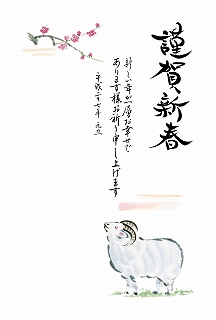 謹賀新春
新しい年が一層お幸せで
あります様お祈り申し上げます
平成二十七年 元旦